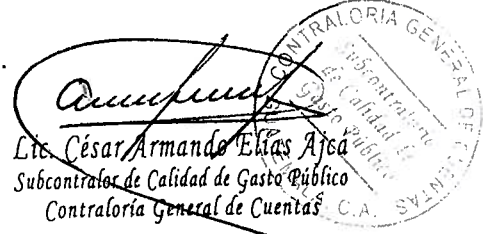 Lic. César Armando Elías Ajcá
Subcontralor de Calidad de Gasto Público
Contraloría General de Cuentas
CONTRALORIA GENERAL DE CUENTAS
Subcontraloría
de Calidad de
Gasto Público
C.A.